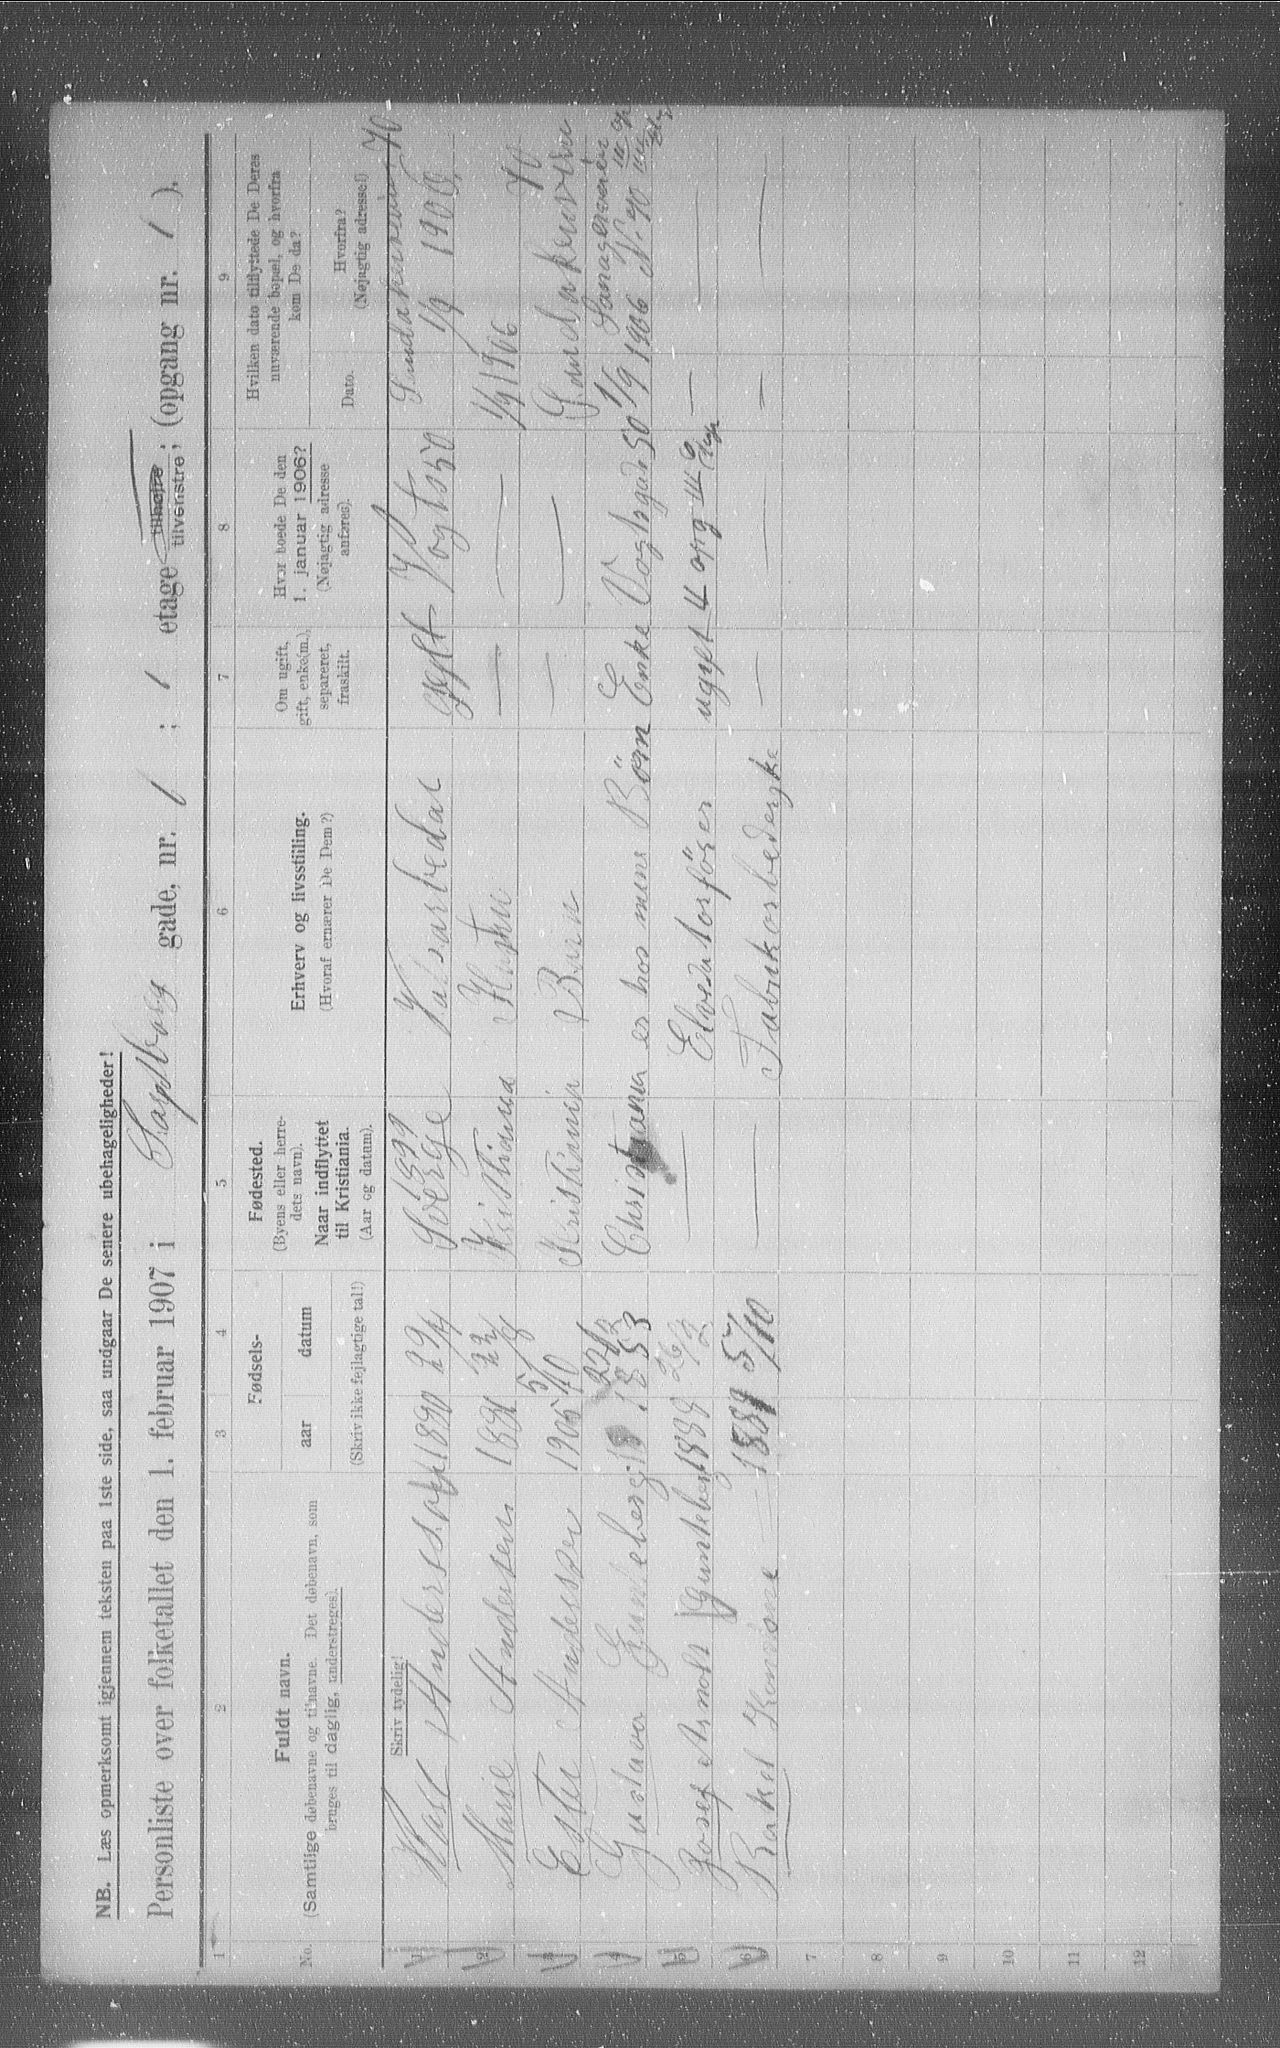 NB. Læs opmerksomt igjennem teksten paa 1ste side, saa undgaar De senere ubehageligheder!
Personliste over folketallet den 1. februar 1907 i Sarpsborg gade, nr. 1 ; 1 etage tilhøire tilvenstre; (opgang nr. 1 ).
1 2 3 4 5 6 7 8 9
No.
Fuldt navn.
(Samtlige døbenavne og tilnavne. Det døbenavn, som
bruges til daglig, understreges).
Fødsels-
aar datum
(Skriv ikke fejlagtige tal!)
Fødested.
(Byens eller herre-
dets navn).
Naar indflyttet
til Kristiania.
(Aar og datum).
Erhverv og livsstilling.
(Hvoraf ernærer De Dem?)
Om ugift,
gift, enke(m.),
separeret,
fraskilt.
Hvor boede De den
1. januar 1906?
(Nøjagtig adresse
anføres).
Hvilken dato tilflyttede De Deres
nuværende bopæl, og hvorfra
kom De da?
Dato.
Hvorfra?
(Nøjagtig adresse!)
Skriv tydelig!
1 Karl Andersson 29/4 1899 Sverge gift Vogts 50 Sandakerveien 70 1/9 1906
2 Marie Andersen Kristiania Hustru — — 1/9 1906
3 Ester Andersen 1905 5/10 Kristiania Barn — — Sandakerveien 70
4 Gustava Gunkeberg 1853 Christiania er hos mine Börn Enke Vogtsgade 50 1/9 1906 N. 70
5 Josef Arnolt Gunkeberg 1888 26/2 — ugift 4 opg III — —
6 Rakel Kondine — 1889 5/10 — Fabrikarbederske — — — —
7
8
9
10
11
12